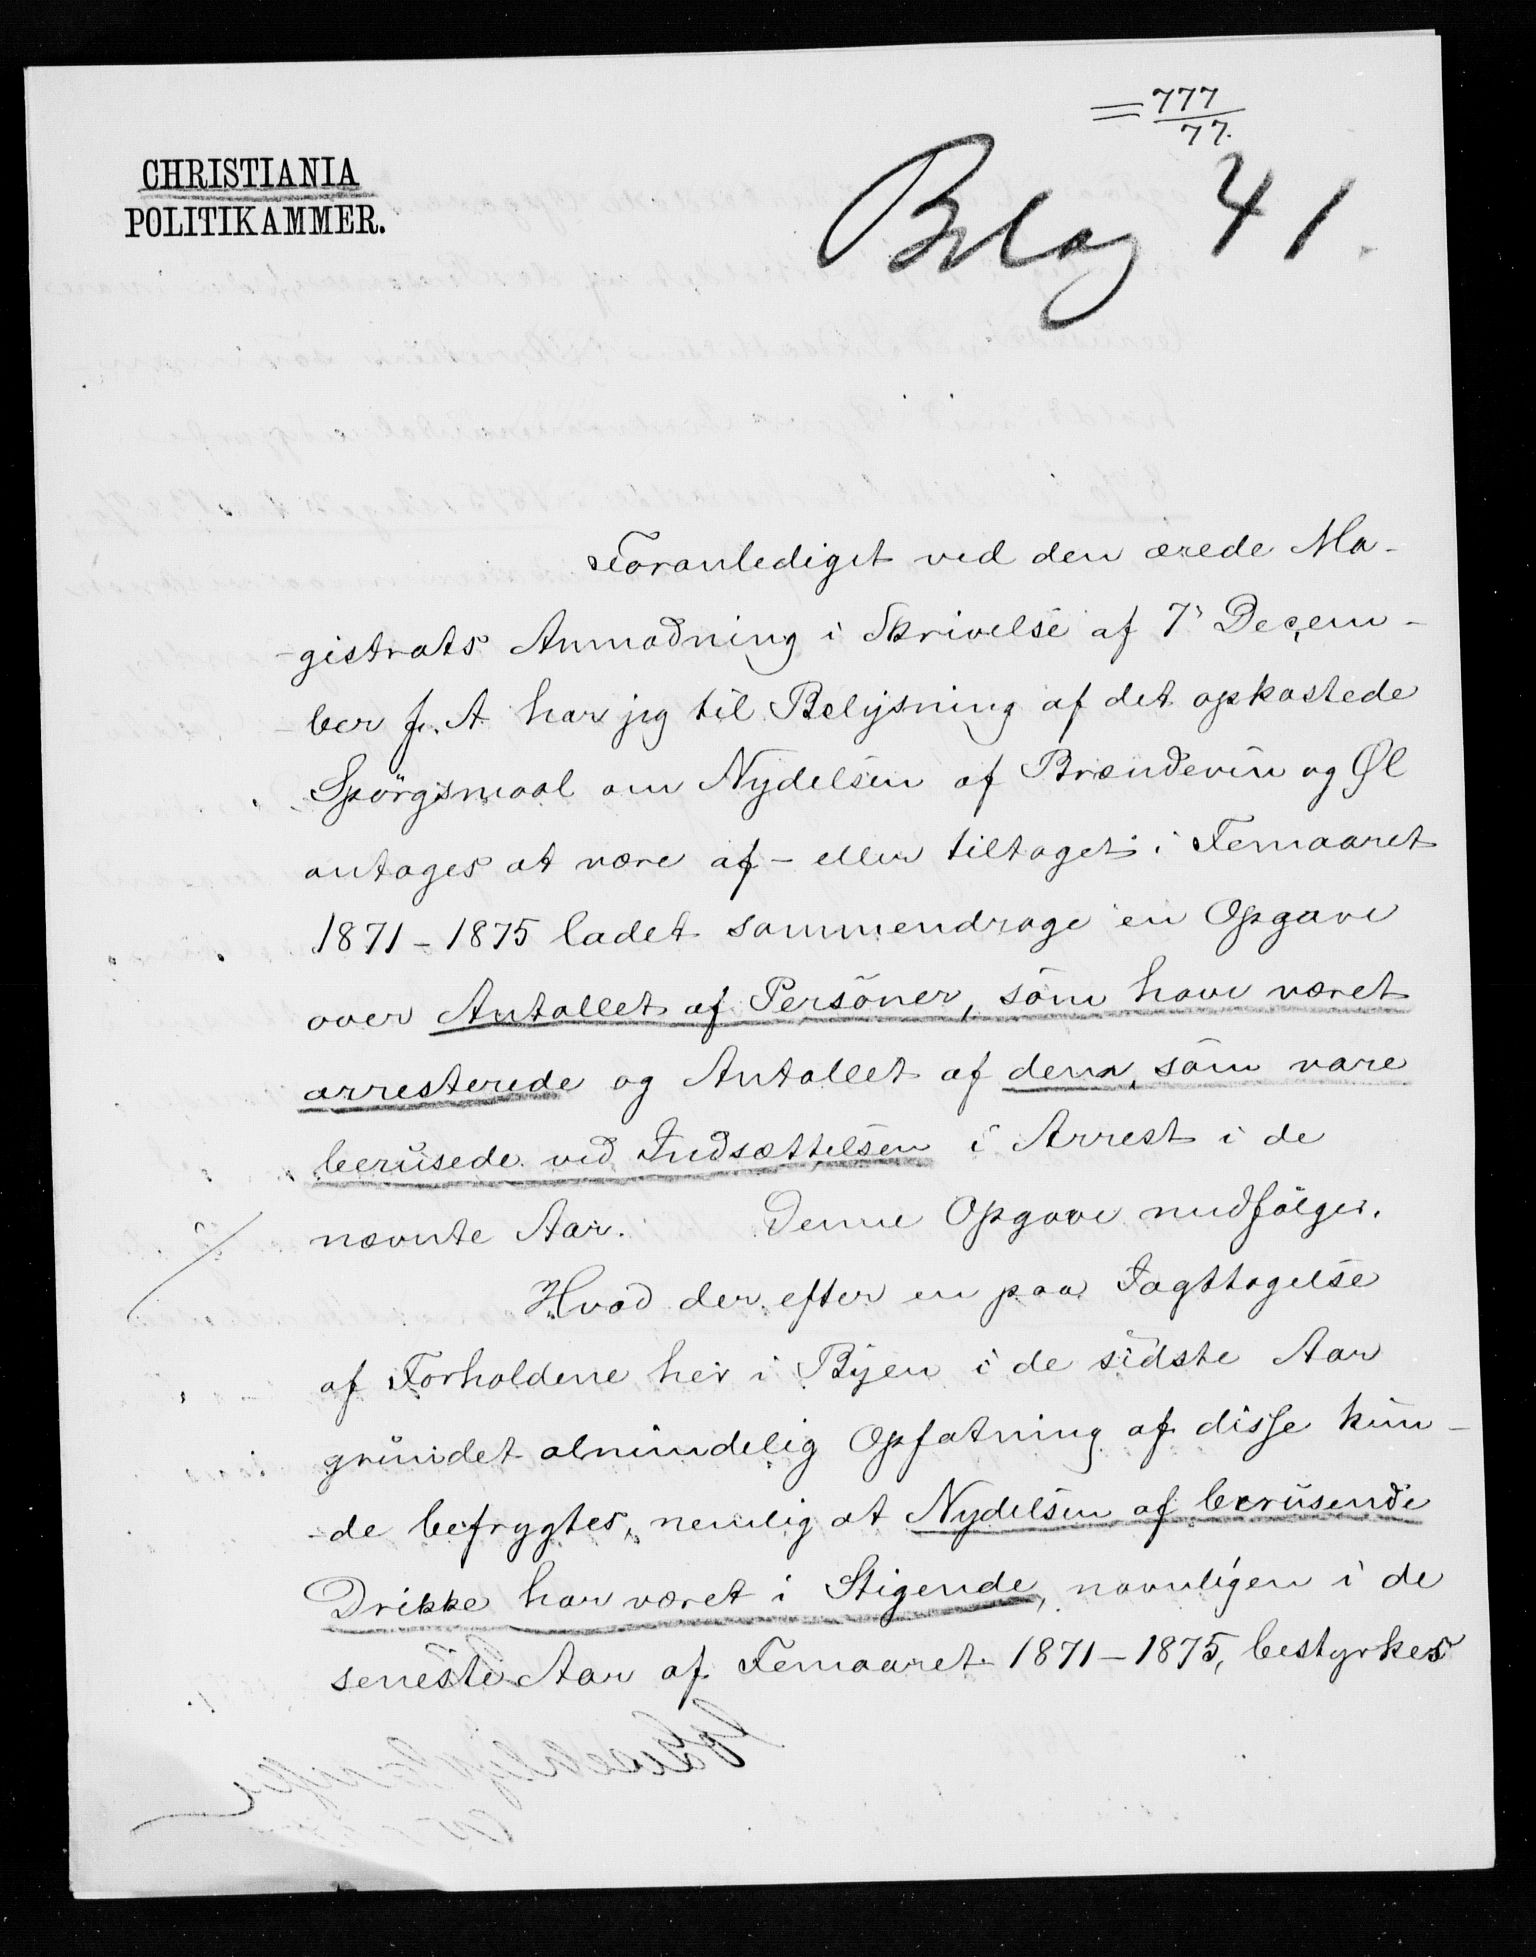 = 777
77.
CHRISTIANIA
POLITIKAMMER.
Bilag 41.
Foranlediget ved den ærede Ma-
-gistrats Anmodning i Skrivelse af 7' Decem-
ber f. A. har jeg til Belysning af det opkastede
Spörgsmaal om Nydelsen af Brændeviin og Øl
antages at være af- eller tiltaget i Femaaret
1871-1875 ladet sammendrage en Opgave
over Antallet af Personer, som have været
arresterede og Antallet af dem, som vare
berusede ved Indsættelsen i Arrest i de
nævnte Aar. Denne Opgave medfölger.
Hvad der efter en paa Iagttagelse
af Forholdene her i Byen i de sidste Aar
grundet almindelig Opfatning af disse kun-
-de befrygtes, nemlig at Nydelsen af berusende
Drikke har været i Stigende, navnligen i de
seneste Aar af Femaaret 1871-1875, bestyrkes